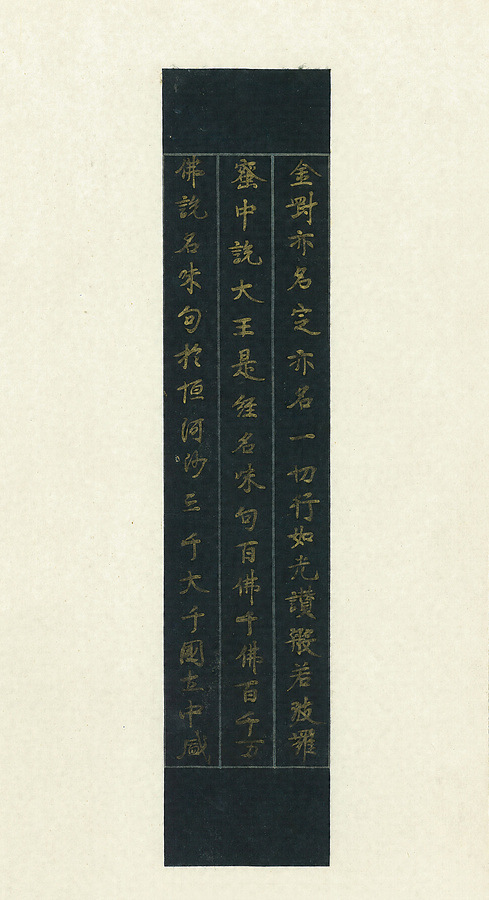 金剛亦名定亦名一切行如光讚般若波羅
蜜中說大王是經名味句百佛千佛百千万
佛說名味句於恒河沙三千大千國土中咸